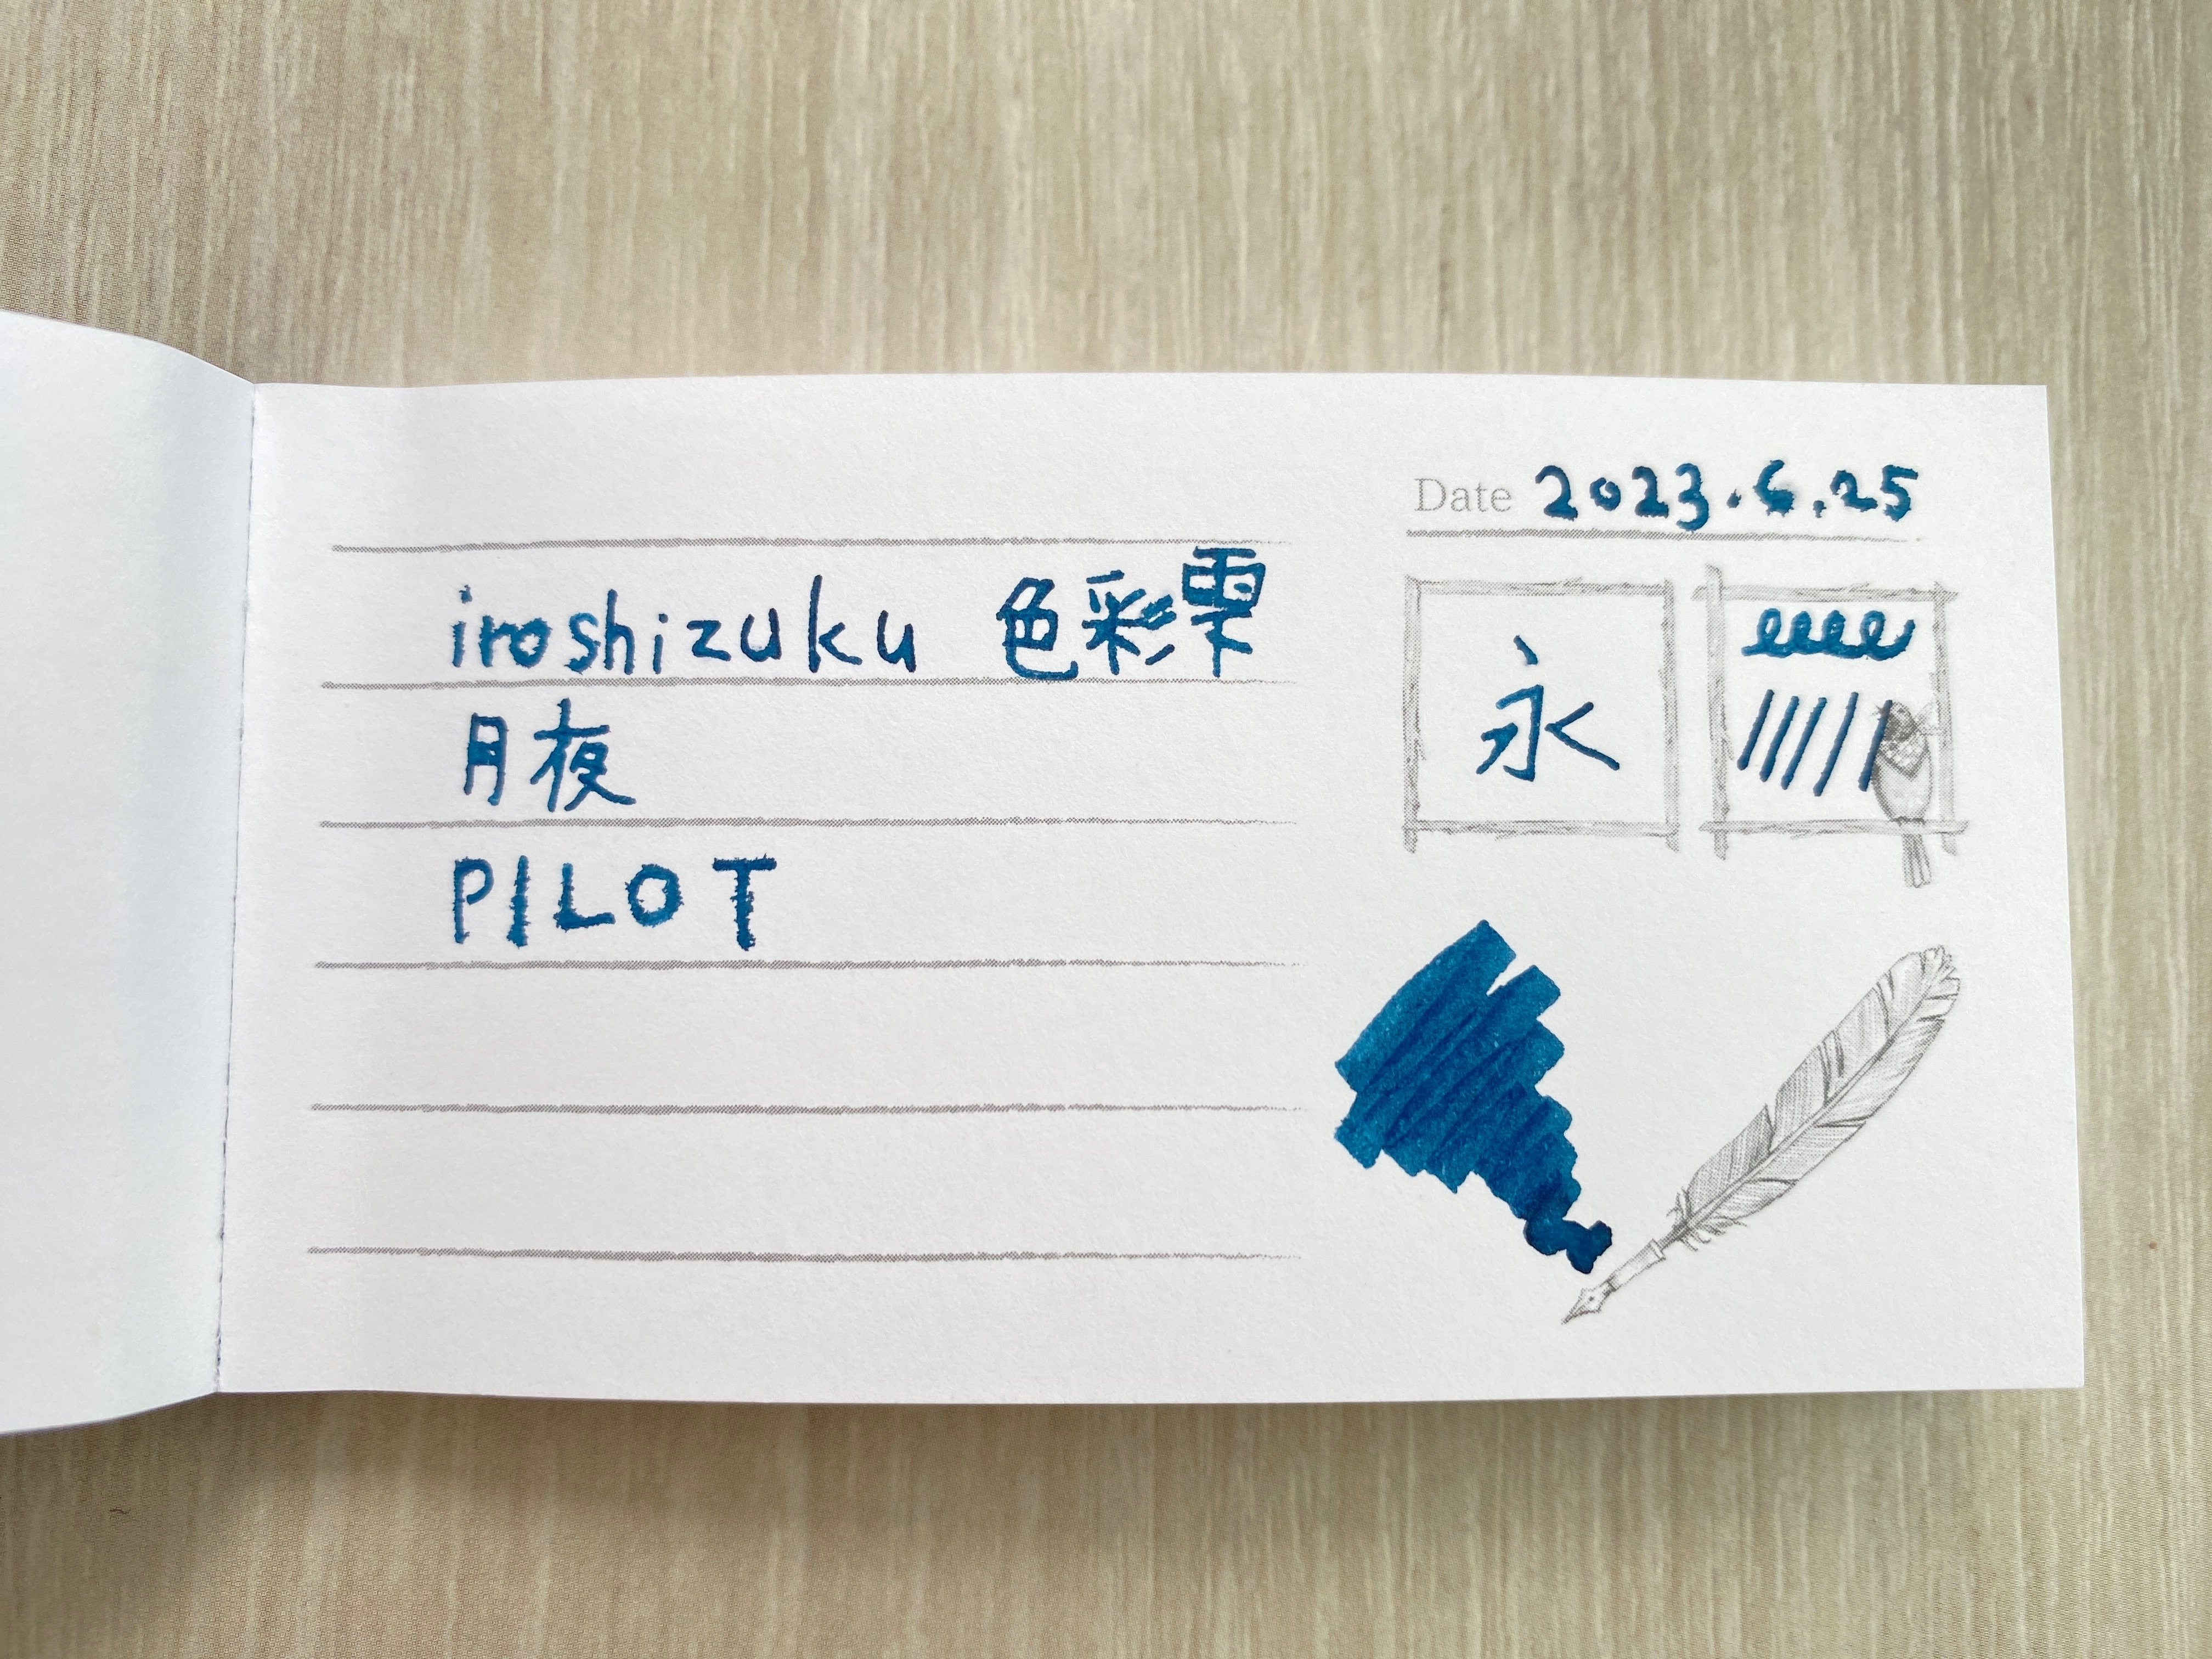 Date 2023.6.25
iroshizuku 色彩雫
月夜
PILOT
永
eeee